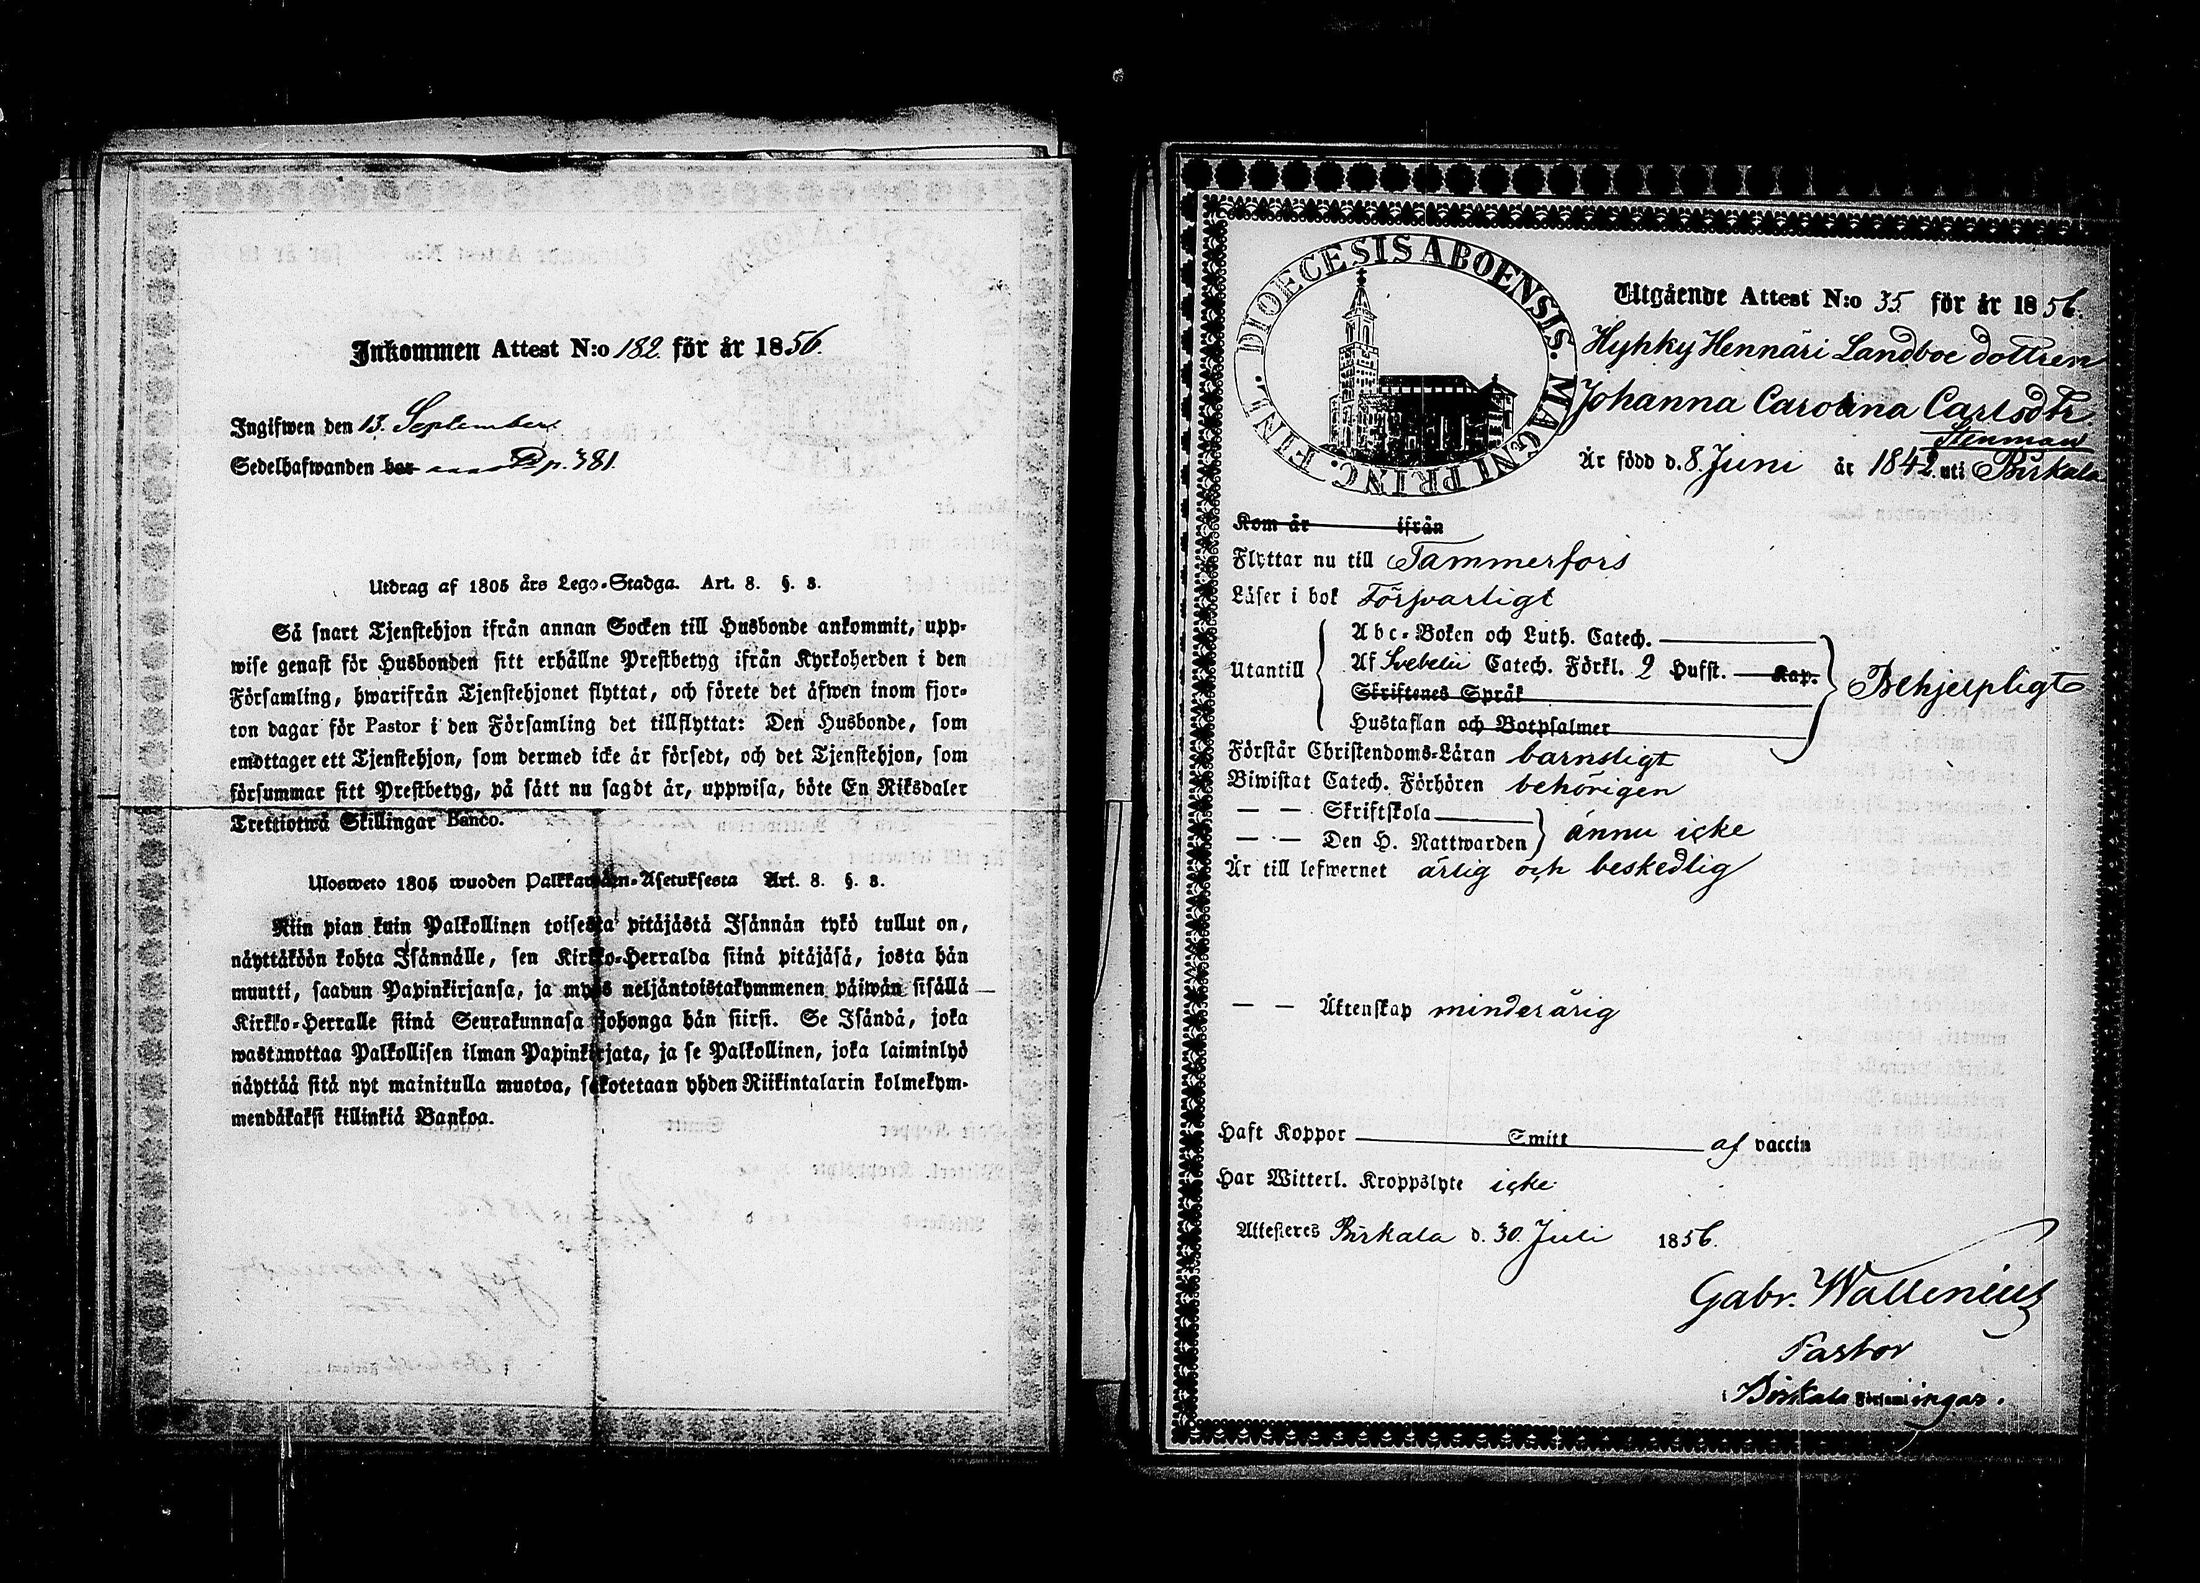 Inkommen Attest N:o 182. för år 1856.
Ingifwen den 13. September
Sedelhafwanden har p. 381.
Utdrag af 1805 års Lego-Stadga. Art. 8. §. 8.
Så snart Tjenstehjon ifrån annan Socken till Husbonde ankommit, upp-
wise genast för Husbonden sitt erhållne Prestbetyg ifrån Kyrkoherden i den
Församling, hwarifrån Tjenstehjonet flyttat, och förete det äfwen inom fjor-
ton dagar för Pastor i den Församling det tillflyttat: Den Husbonde, som
emottager ett Tjenstehjon, som dermed icke är försedt, och det Tjenstehjon, som
försummar sitt Prestbetyg, på sätt nu sagdt är, uppwisa, böte En Riksdaler
Trettiotwå Skillingar Banco.
Ulosweto 1805 wuoden Palkkawäen-Asetuksesta Art. 8. §. 8.
Niin pian kuin Palkollinen toisesta pitäjästä Isännän tykö tullut on,
näyttäköön kohta Isännälle, sen Kirkko-Herralda siinä pitäjäsä, josta hän
muutti, saadun Papinkirjansa, ja myös neljäntoistakymmenen päiwän sisällä
Kirkko-Herralle siinä Seurakunnasa johonga hän siirsi. Se Isändä, joka
wastanottaa Palkollisen ilman Papinkirjata, ja se Palkollinen, joka laiminlyö
näyttää sitä nyt mainitulla muotoa, sakotetaan yhden Riikintalarin kolmekym-
mendäkaksi killinkiä Bankoa.
DIOECESIS ABOENSIS. MAGNI PRINC. FINL.
Utgående Attest N:o 35 för år 1856.
Hyhky Hennäri Landboe dottren
Johanna Carolina Carlsdtr.
Stenman
Är född d. 8. Juni år 1842 uti Birkala
Kom år ifrån
Flyttar nu till Tammerfors
Läser i bok Försvarligt
Utantill
Abc-Boken och Luth. Catech.
Af Svebelii Catech. Förkl. 2 Hufst. Kap.
Skriftenes Språk
Hustaflan och Botpsalmer
Behjelpligt
Förstår Christendoms-Läran barnsligt
Biwistat Catech. Förhören behörigen
— — Skriftskola
— — Den H. Nattwarden
ännu icke
Är till lefwernet ärlig och beskedlig
— — Äktenskap minderårig
Haft Koppor Smitt af vaccin
Har Witterl. Kroppslyte icke
Attesteres Birkala d. 30. Juli 1856.
Gabr. Wallenius
Pastor
i Birkala Församlingar.